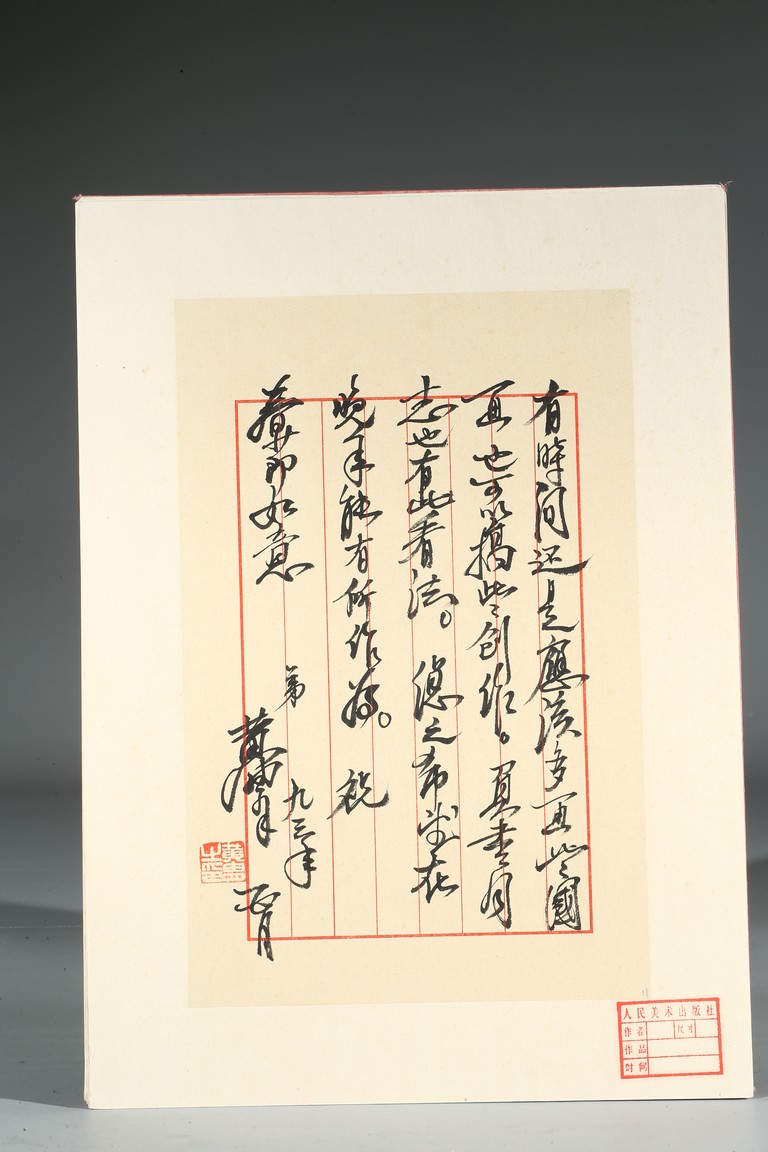 有時间还是應該多画些國
画也可以搞些创作。同
志也有此看法。總之希望在
晚年能有所作為。祝
春节如意
弟
黄胄
九三年
正月
人民美术出版社
作者 尺寸
作品
时间